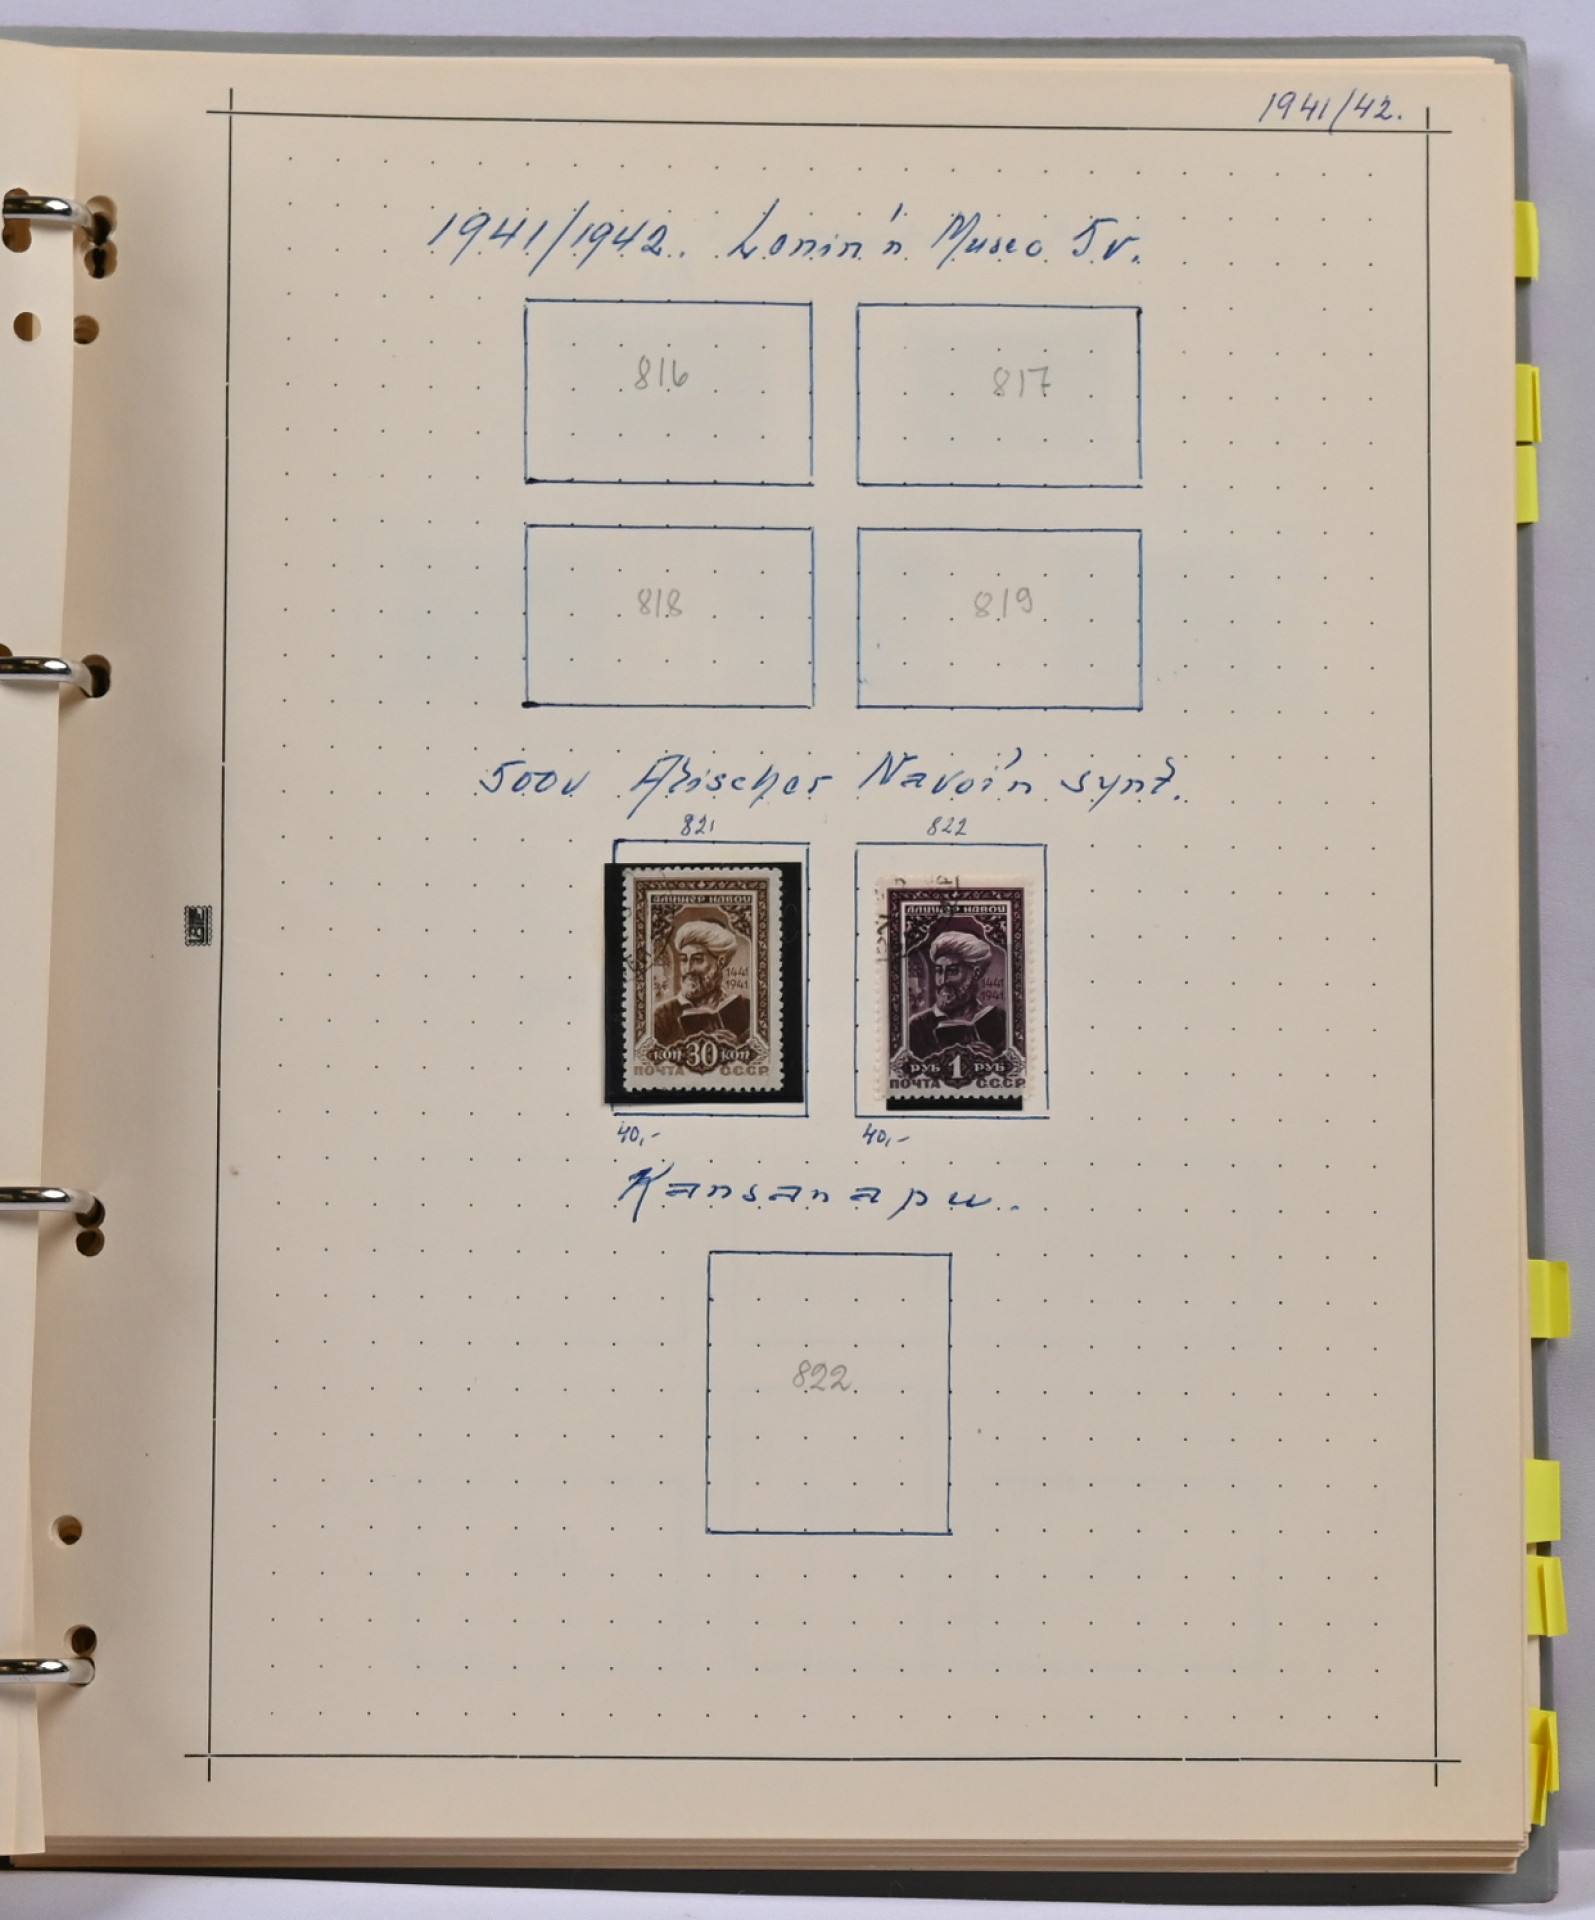 1941/42.
1941/1942. Lenin'n Museo 5v.
816 817
818 819
500v Alischer Navoi'n synt.
821 822
АЛИШЕР НАВОИ
1441
1941
КОП 30 КОП
ПОЧТА СССР
АЛИШЕР НАВОИ
1441
1941
РУБ 1 РУБ
ПОЧТА СССР
40,- 40,-
Kansanapu.
822